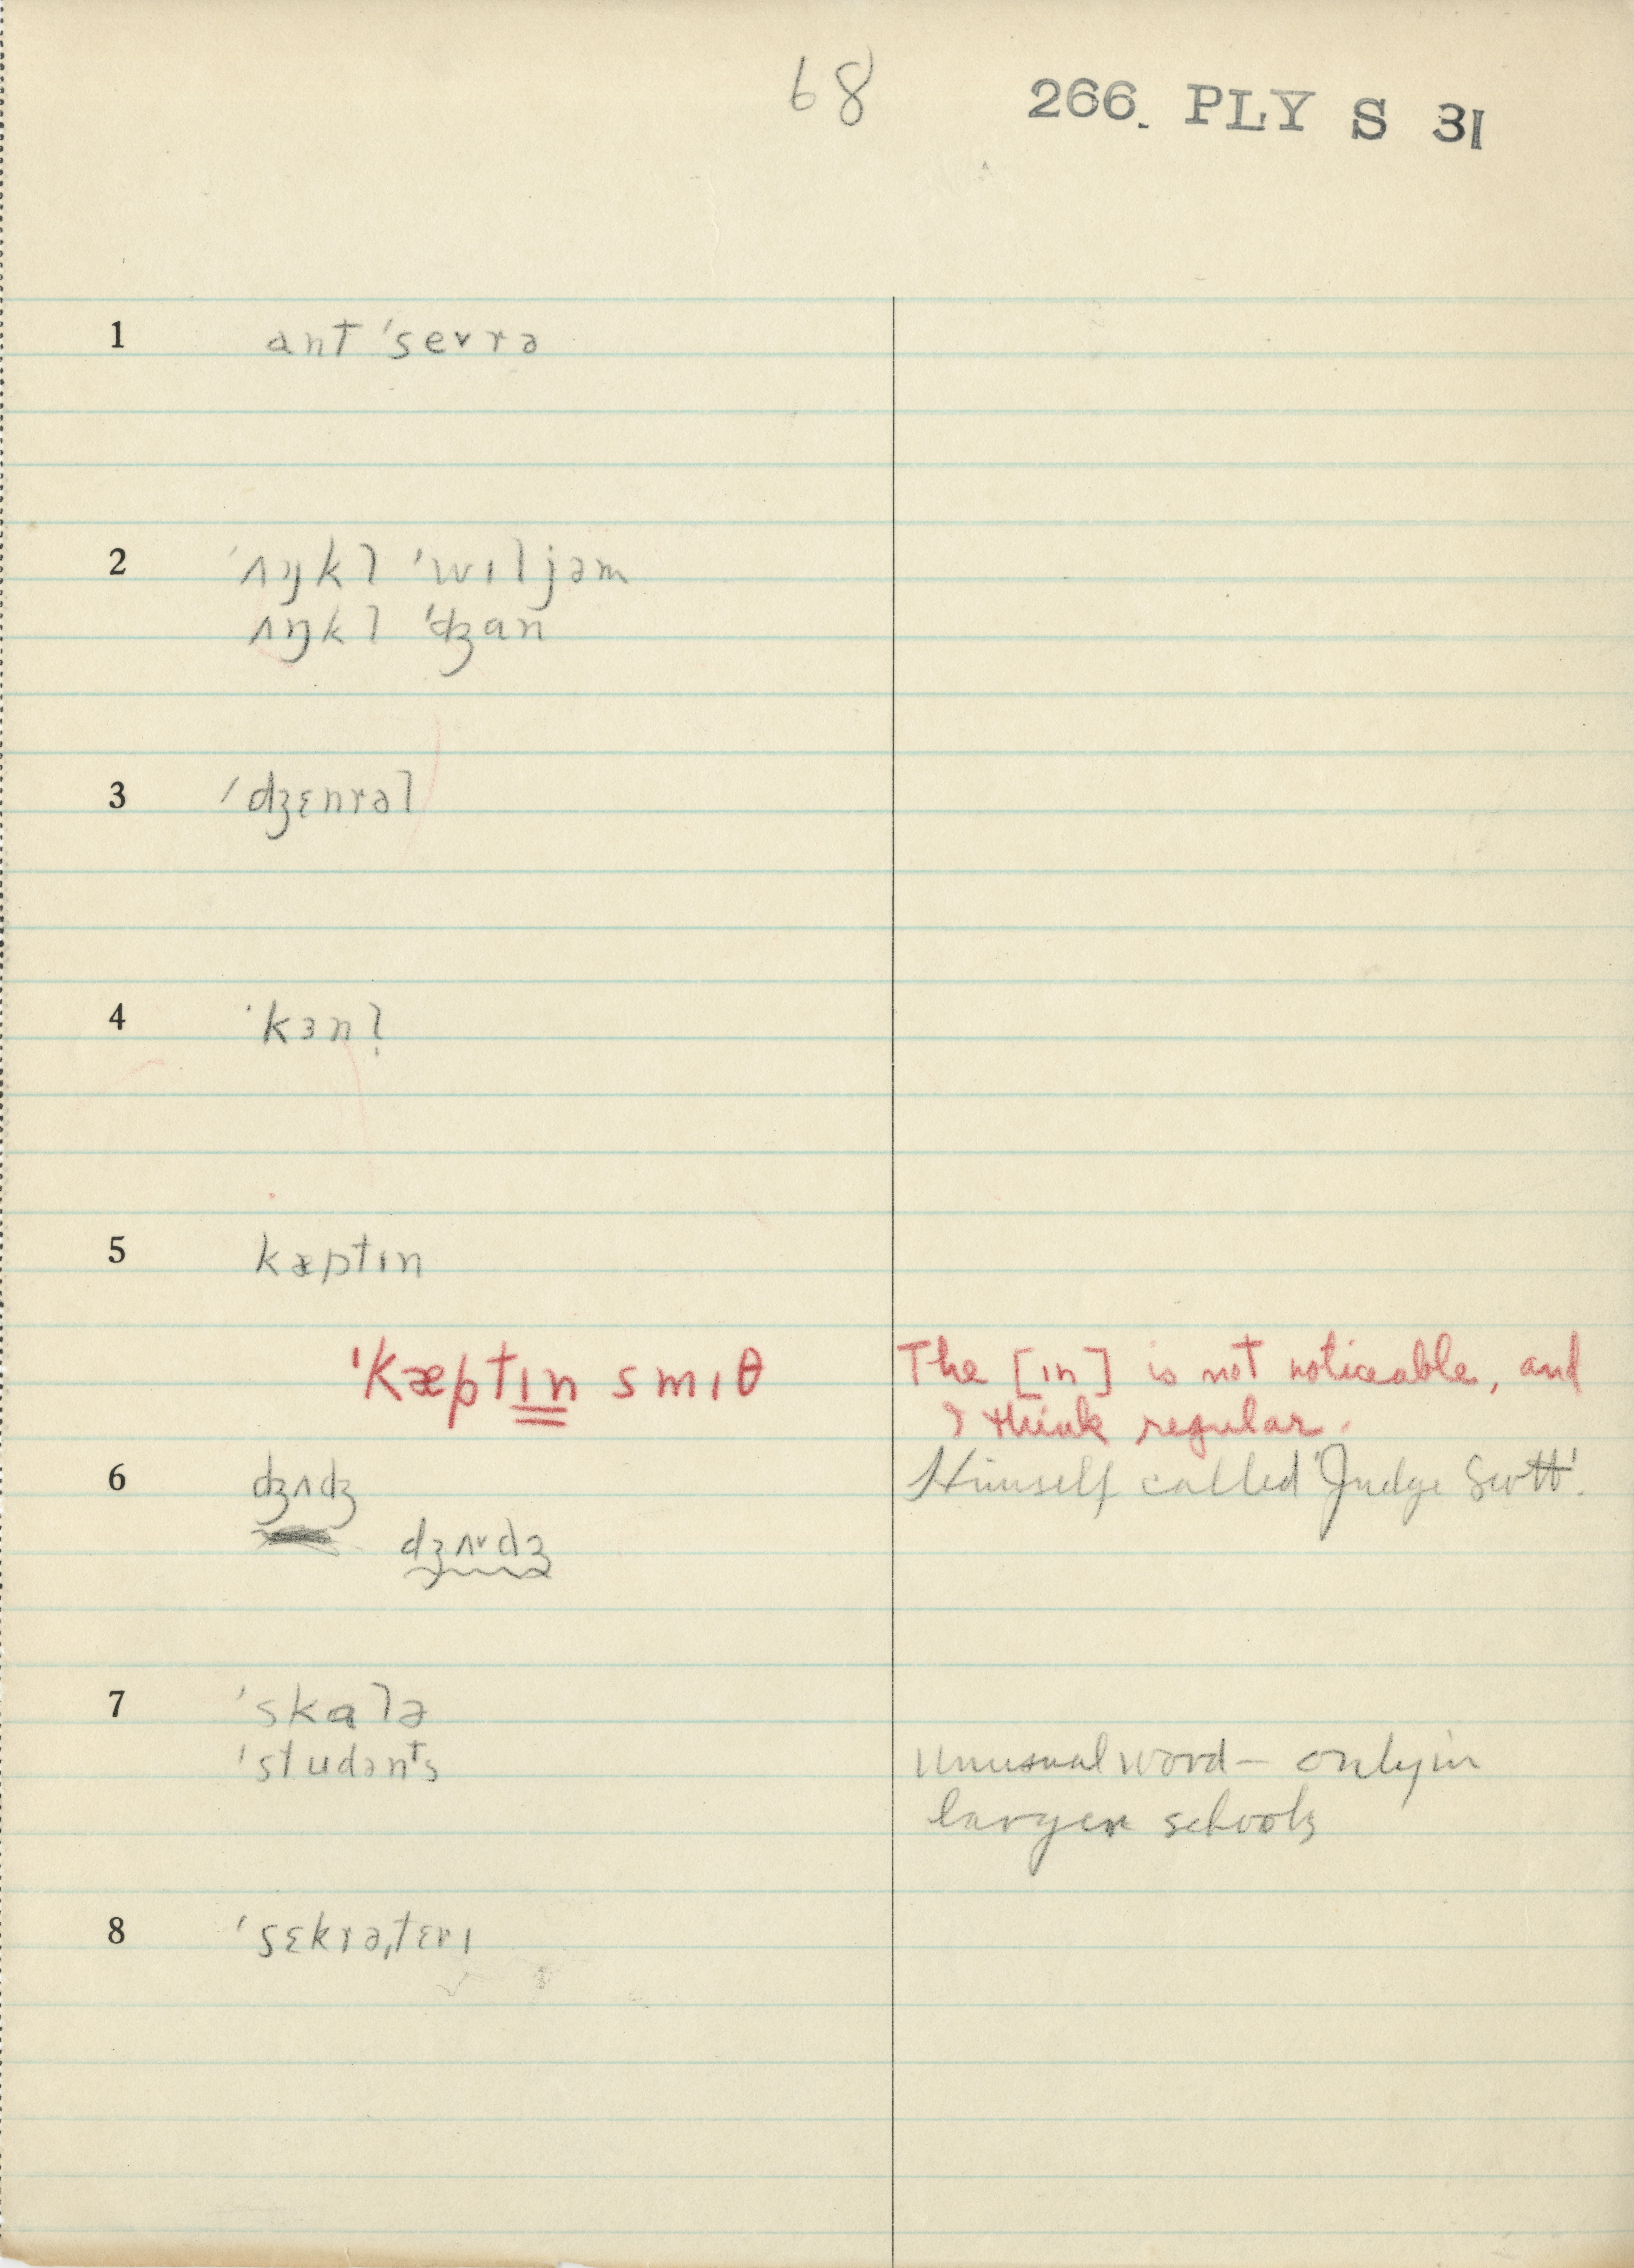 68 266. PLY S 31
1 ant ˈsevrə
2 ˈʌŋkl ˈwɪljəm
ʌŋkl ˈʤan
3 ˈʤɛnrəl
4 ˈkɜnl̩
5 kæptɪn
ˈkæptɪn smɪθ The [ɪn] is not noticeable, and
I think regular.
6 ʤʌʤ Himself called 'Judge Scott'.
dʒʌ˅dʒ
7 ˈskalə
ˈstudənts unusual word – only in
larger schools
8 ˈsɛkrəˌtɛrɪ